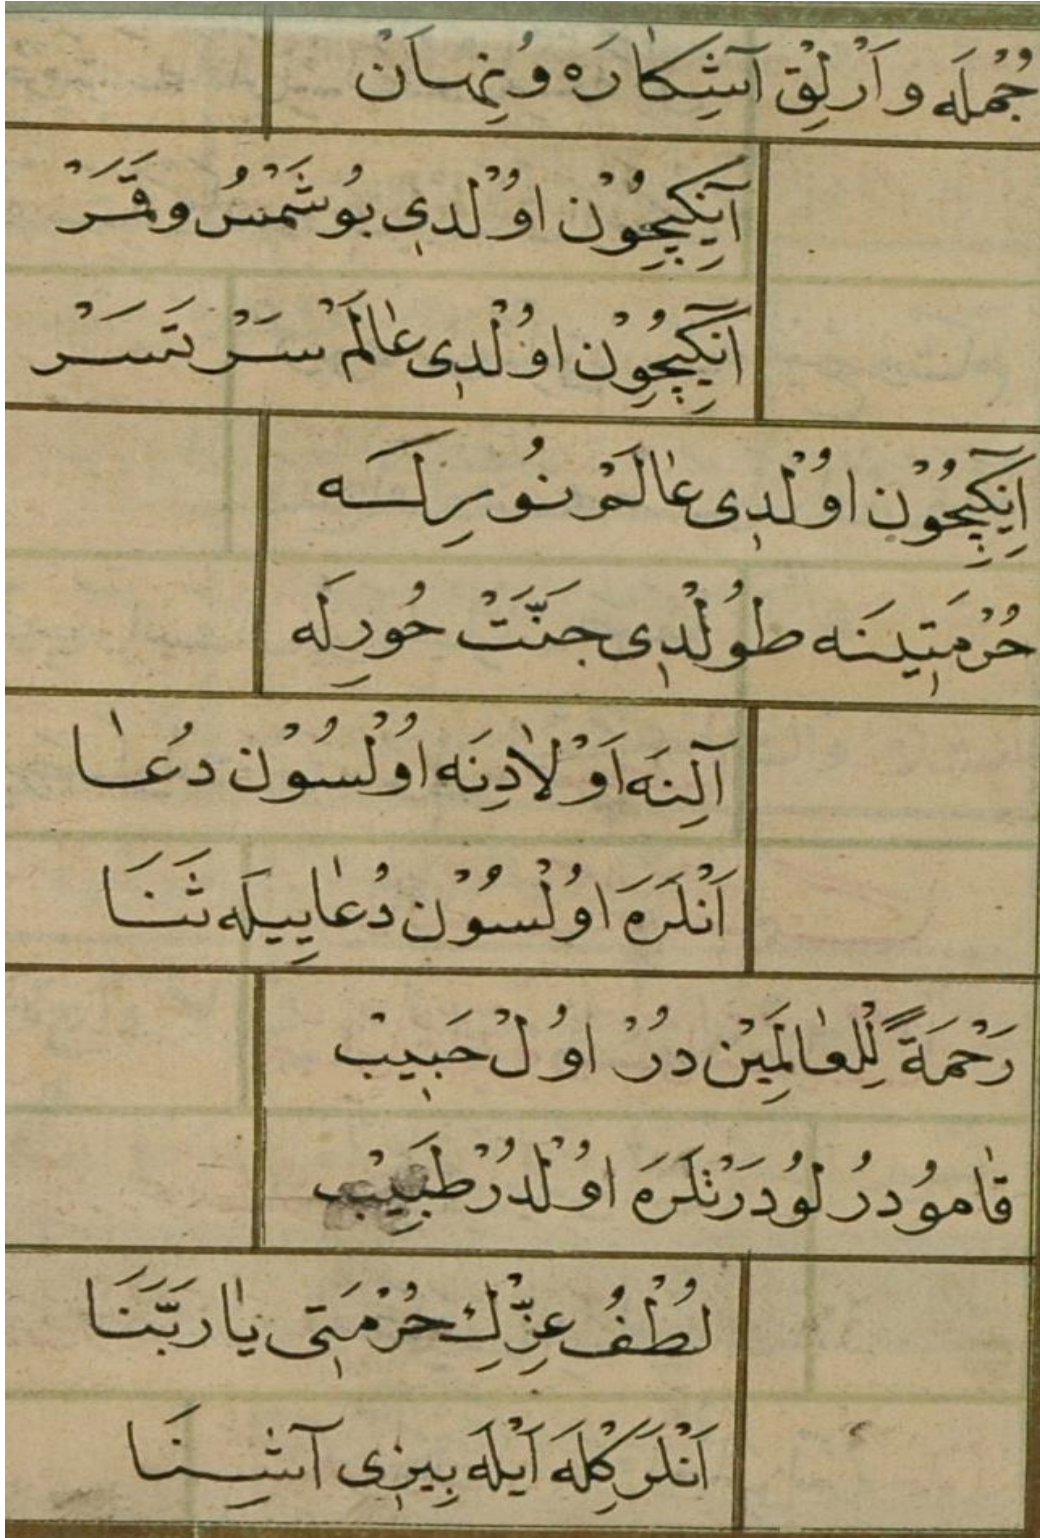 جُمْلَه وَارْلِقْ آشِكَارَه وُ نِهَانْ
آنِكِيچُوْنْ اوُلْدِى بُو شَمْسُ و قَمَرْ
آنِكِيچُوْنْ اوُلْدِى عَالَمْ سَرْ بَسَرْ
آنِكِيچُوْنْ اوُلْدِى عَالَمْ نُورِلَه
حُرْمَتِينَه طُولْدِى جَنَّتْ حُورِلَه
آلِنَه اَوْلَادِنَه اوُلْسُوْنْ دُعَا
اَنْلَرَه اوُلْسُوْنْ دُعَايِيلَه ثَنَا
رَحْمَةً لِلْعَالَمِيْنْ دُرْ اوُلْ حَبِيبْ
قَامُو دُرْلُو دَرْتْلَرَه اوُلْدُرْ طَبِيبْ
لُطْفُ عِزِّكْ حُرْمَتِى يَا رَبَّنَا
اَنْلَرِكْلَه اَيْلَه بِيزِى آشِنَا